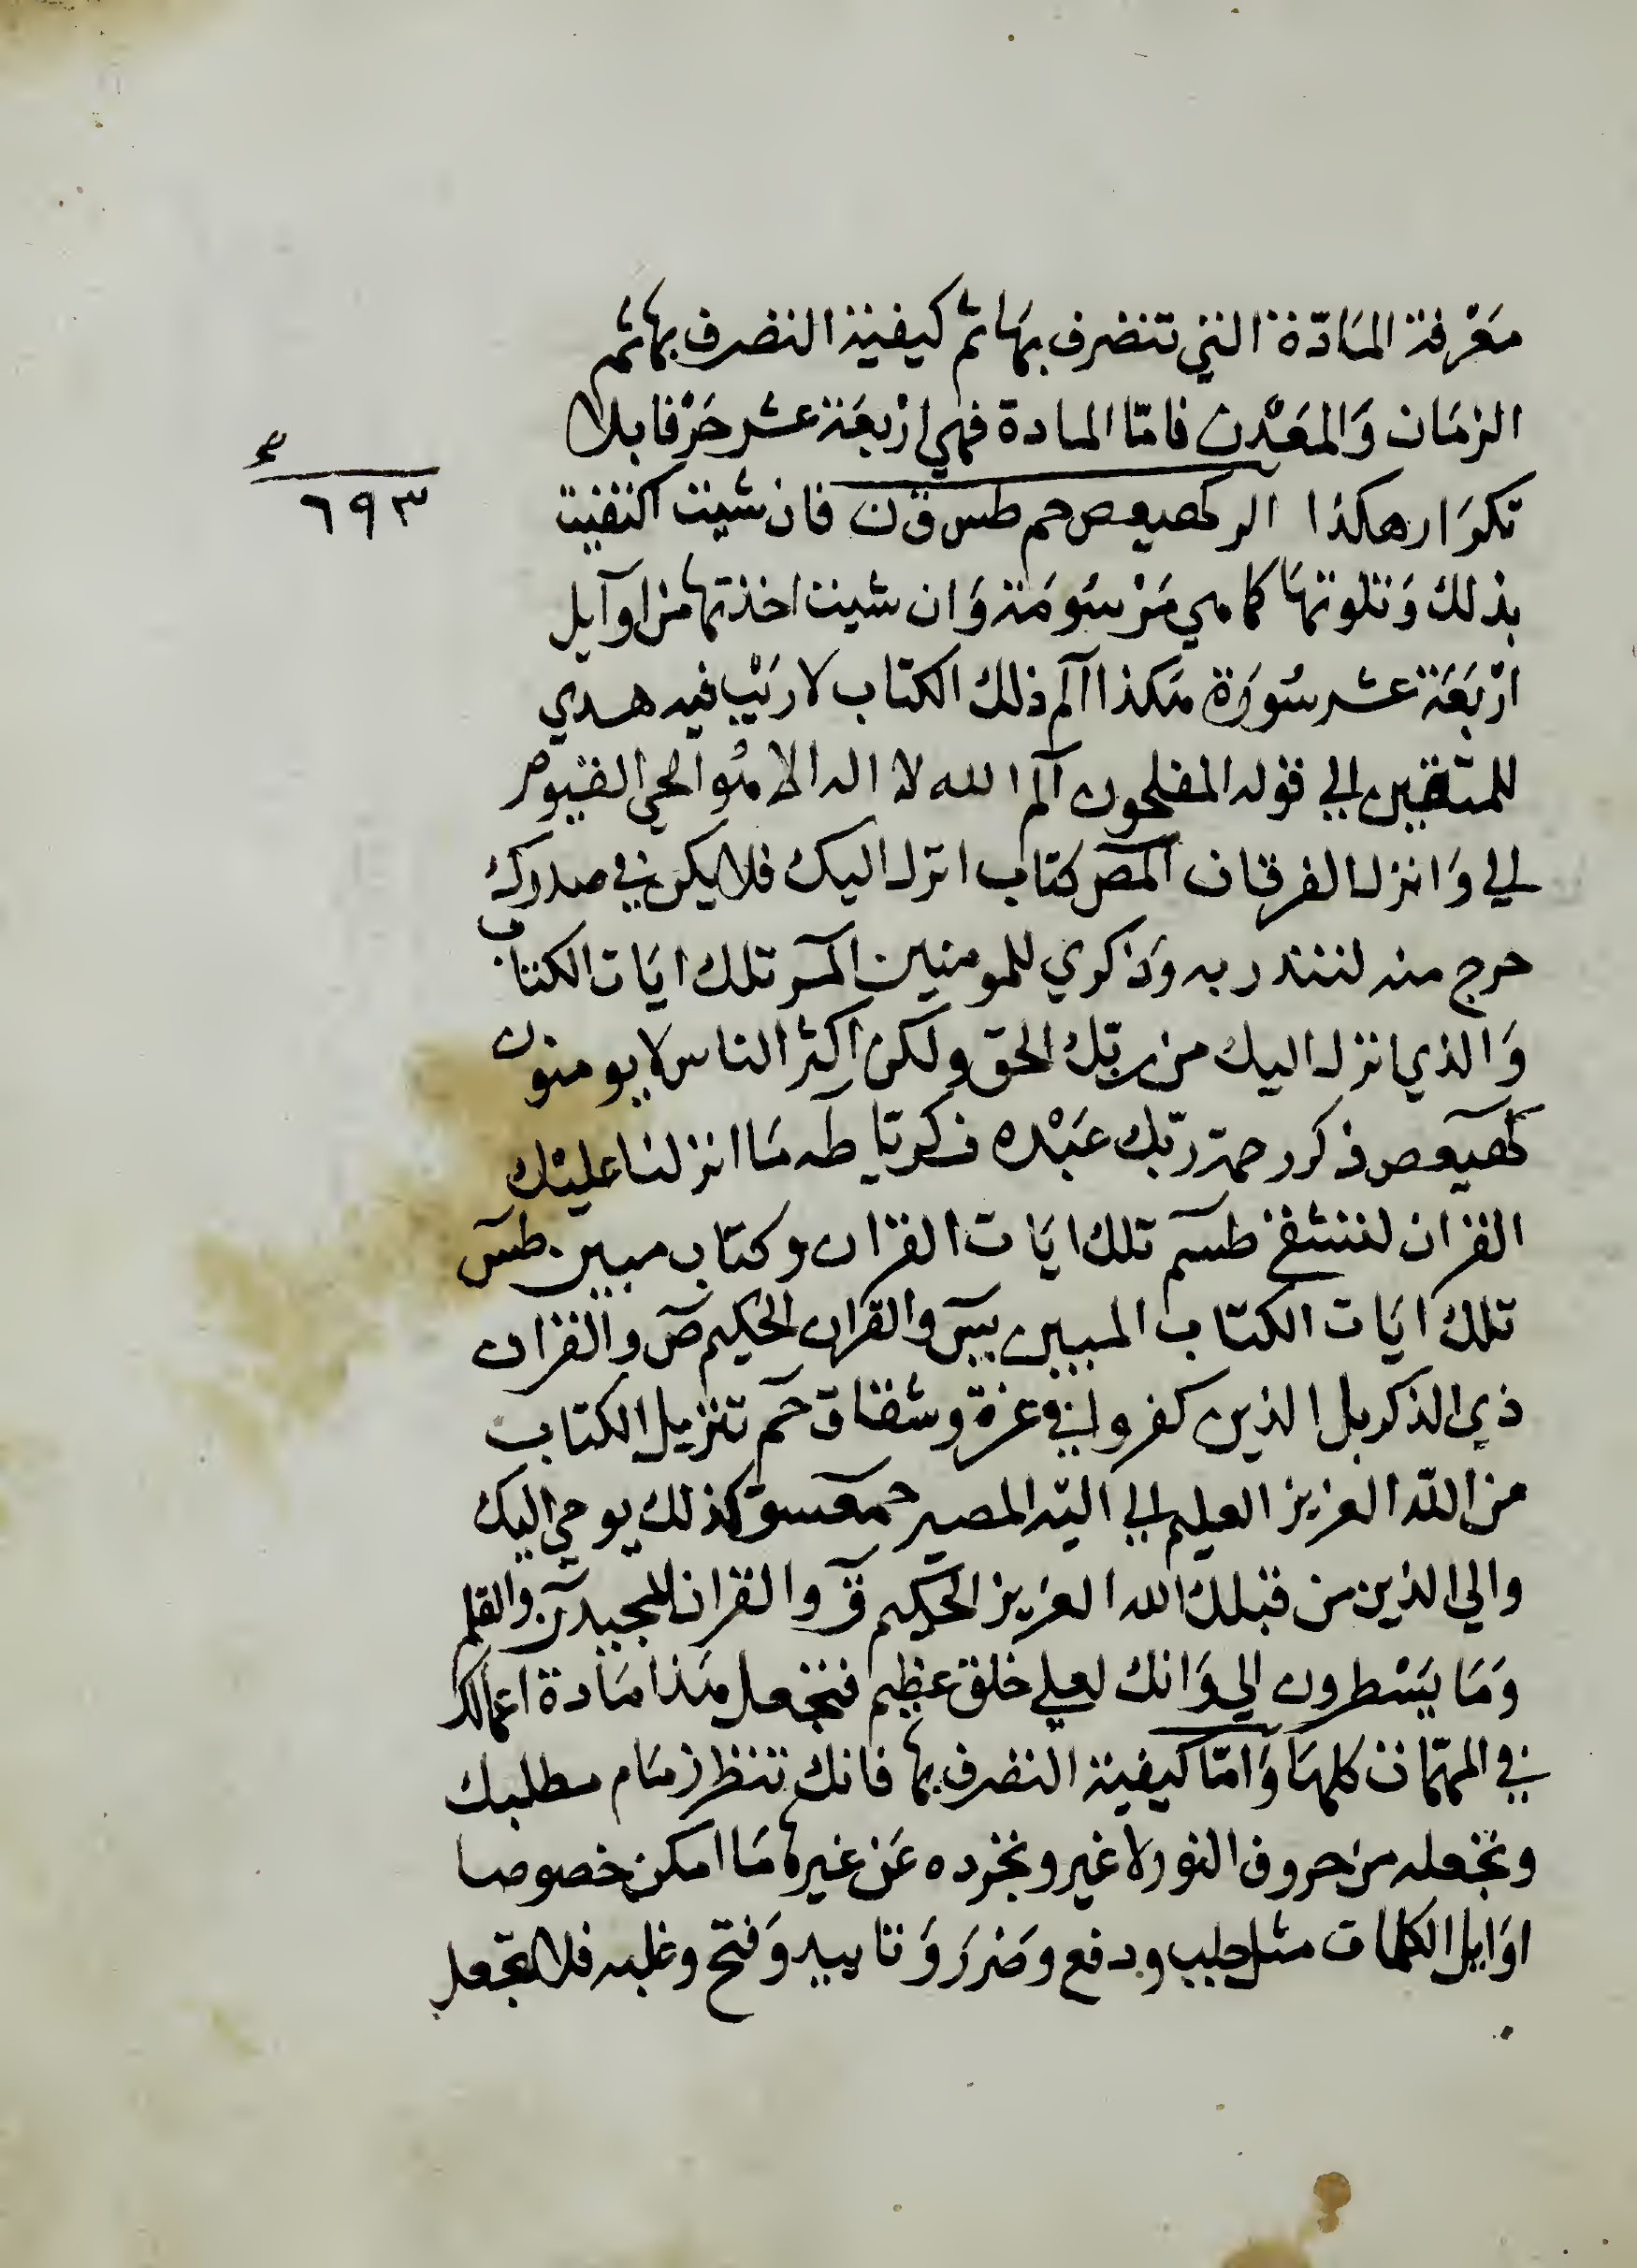 مَعْرفة المَادّة التي تتصرف بهَا ثم كيفية التصرف بها ثم
الزمَان وَالمَعْدن فامّا المادة فهي ارْبعَة عشر حَرْفا بلا
تكرَار هكذا الر كهيعص حم طس ق ن فان شيت اكتفيت
٦٩٣
بذلك وَتلوتهَا كما هي مَرْسُومَة وَان شيت اخذتها من اوآيل
ارْبَعَة عشر سُورَة هَكذا آلم ذلك الكتاب لا رَيْب فيه هدي
للمتقين الي قوله المفلحون آلم الله لا اله الا هُو الحي القيوم
الي وَانزل الفرقان المص كتاب انزل اليك فلا يكن في صدرك
حرج منه لتنذر به وَذكري للمومنين المر تلك ايَات الكتاب
وَالذي انزل اليك من ربّك الحق ولكن اكثر الناس لا يومنون
كهيعص ذكر رحمة ربّك عَبْده زكريا طه مَا انزلنا عليْك
القران لتشقي طسم تلك ايَات القران وكتاب مبين طس
تلك ايَات الكتاب المبين يس والقران الحكيم ص والقران
ذي الذكر بل الذين كفروا في عزة وشقاق حم تنزيل الكتاب
من اللّه العزيز العليم الي اليه المصير حمعسق كذلك يوحي اليك
والي الذين من قبلك الله العزيز الحكيم ق والقران المجيد ن والقلم
وَمَا يَسْطرون الي وَانك لعلي خلق عظيم فتجعل هَذا مَادة اعمالك
في المهمّات كلهَا وَامّا كيفية التصرف بها فانك تنظر زمَام مطلبك
وتجعله من حروف النور لا غير وتجرده عَن غيرها مَا امكن خصوصا
اوَايل الكلمات مثل جلب ودفع وضرَر وَتاييد وَفتح وغلبه فلا تجعل